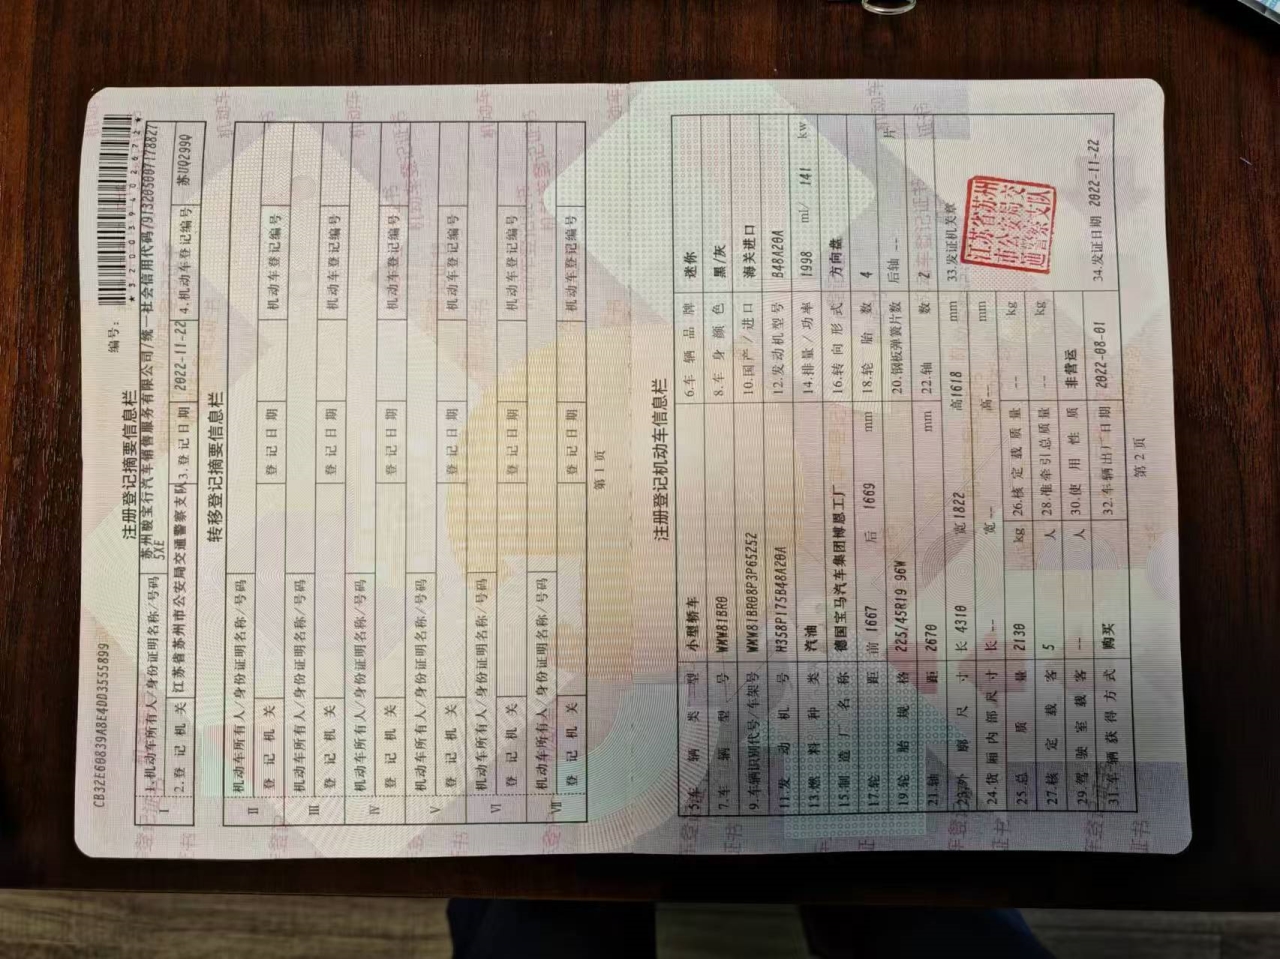 CB32E60839A8E4DD3555899
编号：
*320039402672*
注册登记摘要信息栏
Ⅰ
1.机动车所有人/身份证明名称/号码 苏州骏宝行汽车销售服务有限公司/统一社会信用代码/91320500717882?
5XE
2.登记机关 江苏省苏州市公安局交通警察支队 3.登记日期 2022-11-22 4.机动车登记编号 苏UQ299Q
转移登记摘要信息栏
Ⅱ
机动车所有人/身份证明名称/号码
登记机关 登记日期 机动车登记编号
Ⅲ
机动车所有人/身份证明名称/号码
登记机关 登记日期 机动车登记编号
Ⅳ
机动车所有人/身份证明名称/号码
登记机关 登记日期 机动车登记编号
Ⅴ
机动车所有人/身份证明名称/号码
登记机关 登记日期 机动车登记编号
Ⅵ
机动车所有人/身份证明名称/号码
登记机关 登记日期 机动车登记编号
Ⅶ
机动车所有人/身份证明名称/号码
登记机关 登记日期 机动车登记编号
第 1 页
注册登记机动车信息栏
5.车辆类型 小型轿车 6.车辆品牌 迷你
7.车辆型号 WMW81BR0 8.车身颜色 黑/灰
9.车辆识别代号/车架号 WMW81BR08P3P65252 10.国产/进口 海关进口
11.发动机号 H358P175B48A20A 12.发动机型号 B48A20A
13.燃料种类 汽油 14.排量/功率 1998 ml/ 141 kw
15.制造厂名称 德国宝马汽车集团博恩工厂 16.转向形式 方向盘
17.轮距 前 1667 后 1669 mm 18.轮胎数 4
19.轮胎规格 225/45R19 96W 20.钢板弹簧片数 后轴 -- 片
21.轴距 2670 mm 22.轴数 2
23.外廓尺寸 长 4310 宽 1822 高 1618 mm
33.发证机关章
24.货厢内部尺寸 长 -- 宽 -- 高 -- mm
25.总质量 2130 kg 26.核定载质量 -- kg
27.核定载客 5 人 28.准牵引总质量 -- kg
29.驾驶室载客 -- 人 30.使用性质 非营运
31.车辆获得方式 购买 32.车辆出厂日期 2022-08-01
34.发证日期 2022-11-22
江苏省苏州
市公安局交
通警察支队
第 2 页